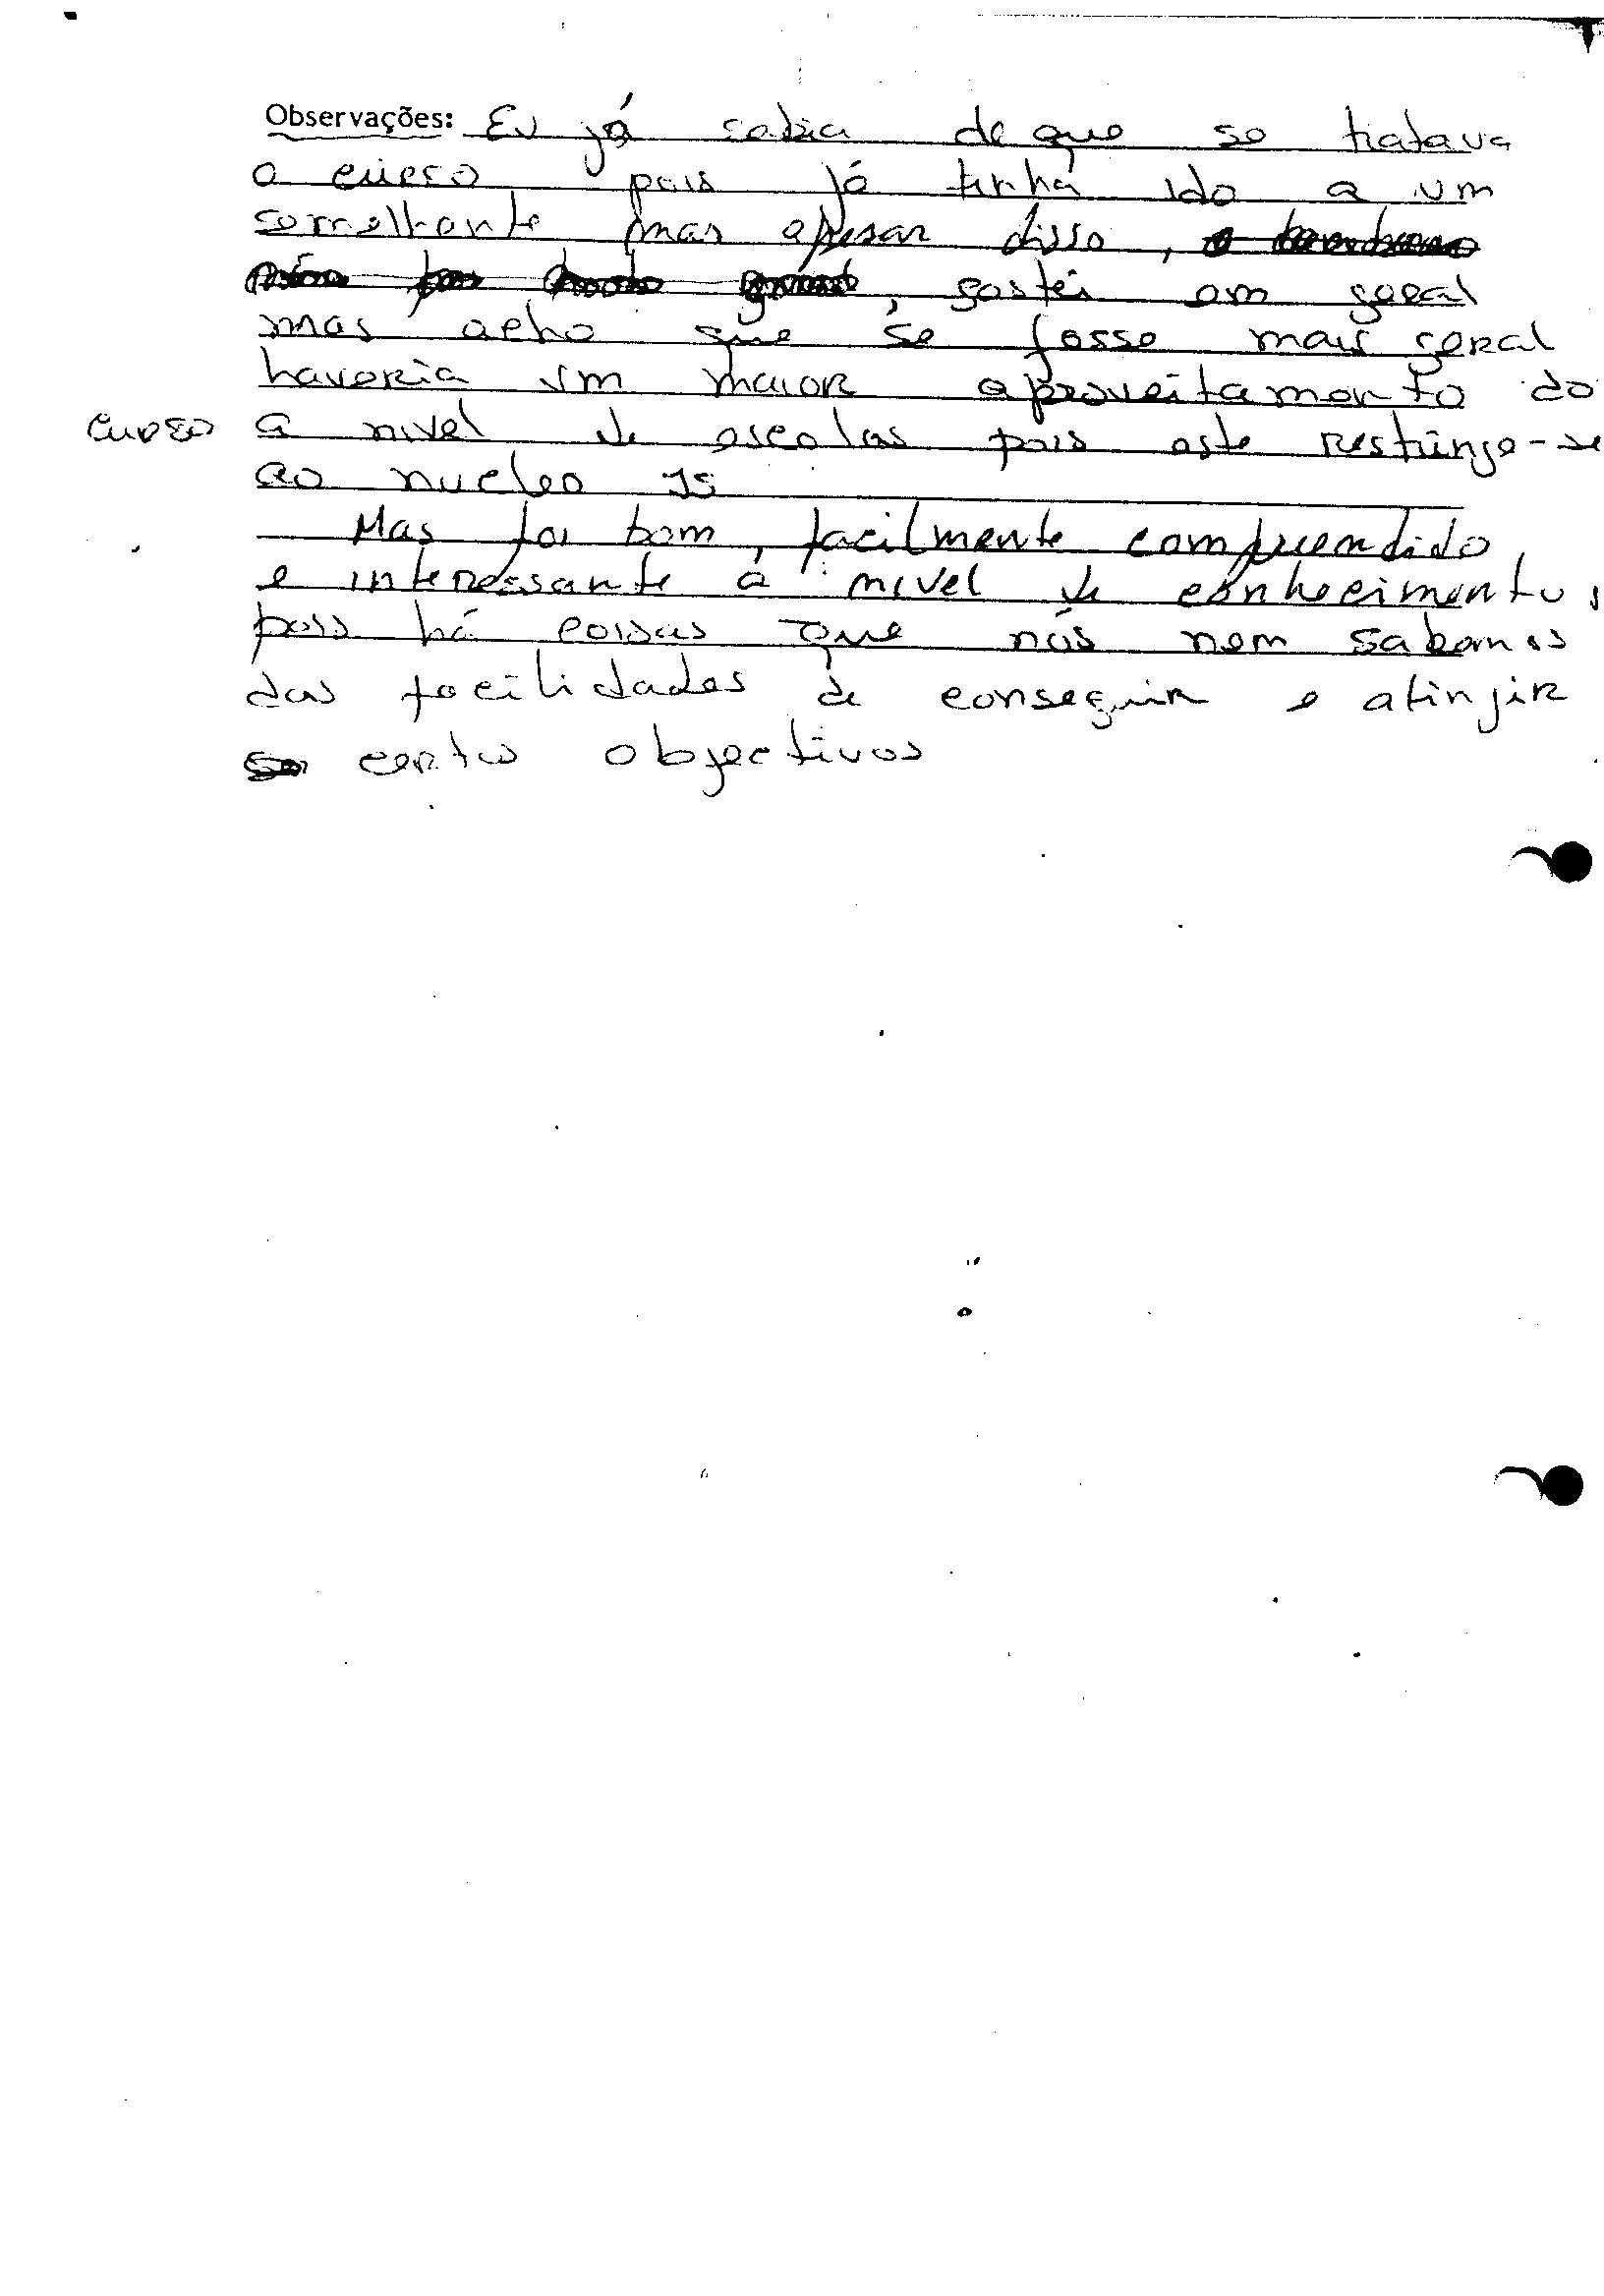 Observações: Eu já sabia de que se tratava
o curso pois já tinha ido a um
semelhante mas apesar disso,
, gostei em geral
mas acho que se fosse mais geral
haveria um maior aproveitamento do
curso a nivel de escolas pois este restringe-se
ao nucleo JS
Mas foi bom, facilmente compreendido,
e interessante á nivel de conhecimentos,
pois há coisas que nós nem sabemos
das facilidades de conseguir e atinjir
certos objectivos